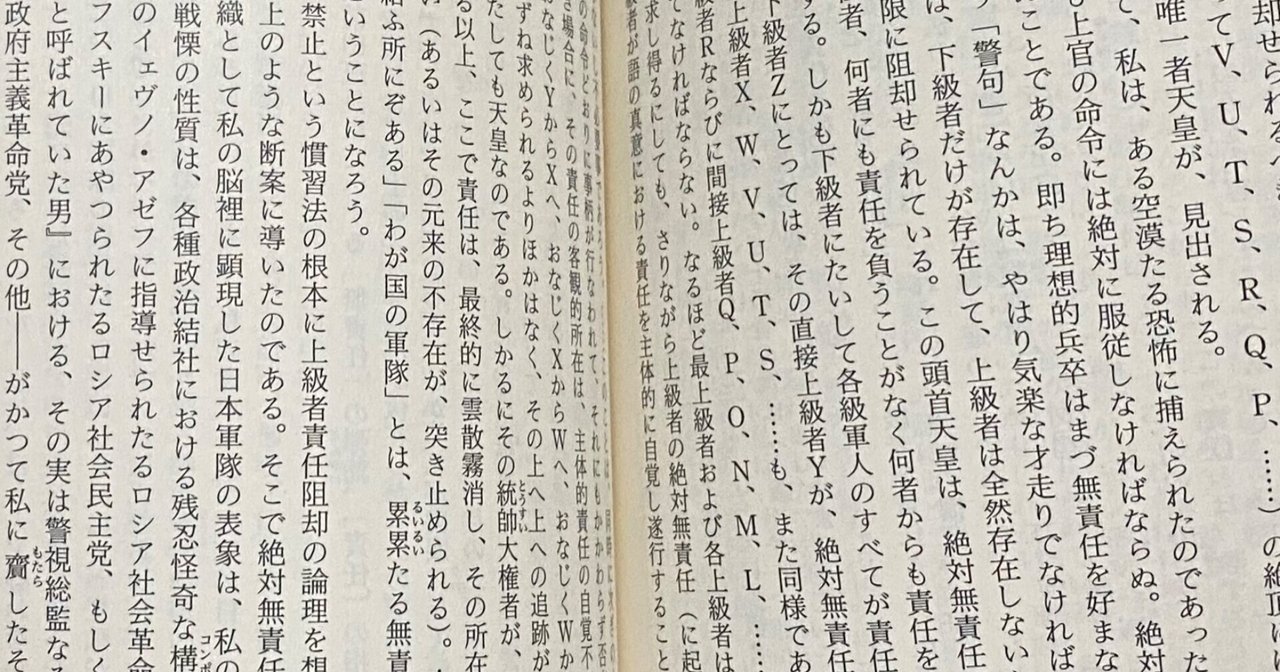 却せられる
ってV、U、T、S、R、Q、P、……）の絶頂に
唯一者天皇が、見出される。
て、私は、ある空漠たる恐怖に捕えられたのであった
も上官の命令には絶対に服従しなければならぬ。絶対
ことである。即ち理想的兵卒はまづ無責任を好まな
す「警句」なんかは、やはり気楽な才走りでなければ
は、下級者だけが存在して、上級者は全然存在しない
限に阻却せられている。この頭首天皇は、絶対無責任
者、何者にも責任を負うことがなく何者からも責任を
する。しかも下級者にたいして各級軍人のすべてが責任
下級者Zにとっては、その直接上級者Yが、絶対無責任
上級者X、W、V、U、T、S、……も、また同様であ
級者Rならびに間接上級者Q、P、O、N、M、L、……
てなければならない。なるほど最上級者および各上級者は
求し得るにしても、さりながら上級者の絶対無責任（に起
級者が語の真意における責任を主体的に自覚し遂行すること
の命令どおりに事柄が行なわれて、それにもかかわらず否
き場合に、その責任の客観的所在は、主体的責任の自覚不
おなじくYからXへ、おなじくXからWへ、おなじくWか
ずね求められるよりほかはなく、その上へ上への追跡が
たしても天皇なのである。しかるにその統帥大権者が、
る以上、ここで責任は、最終的に雲散霧消し、その所在
い（あるいはその元来の不存在が、突き止められる）。
結ふ所にぞある」「わが国の軍隊」とは、累累たる無責
ということになろう。
禁止という慣習法の根本に上級者責任阻却の論理を想
上のような断案に導いたのである。そこで絶対無責任
織として私の脳裡に顕現した日本軍隊の表象は、私の
戦慄の性質は、各種政治結社における残忍怪奇な構
のイェヴノ・アゼフに指導せられたるロシア社会革命
フスキーにあやつられたるロシア社会民主党、もしく
と呼ばれていた男』における、その実は警視総監なる
政府主義革命党、その他――がかつて私に齎したそ